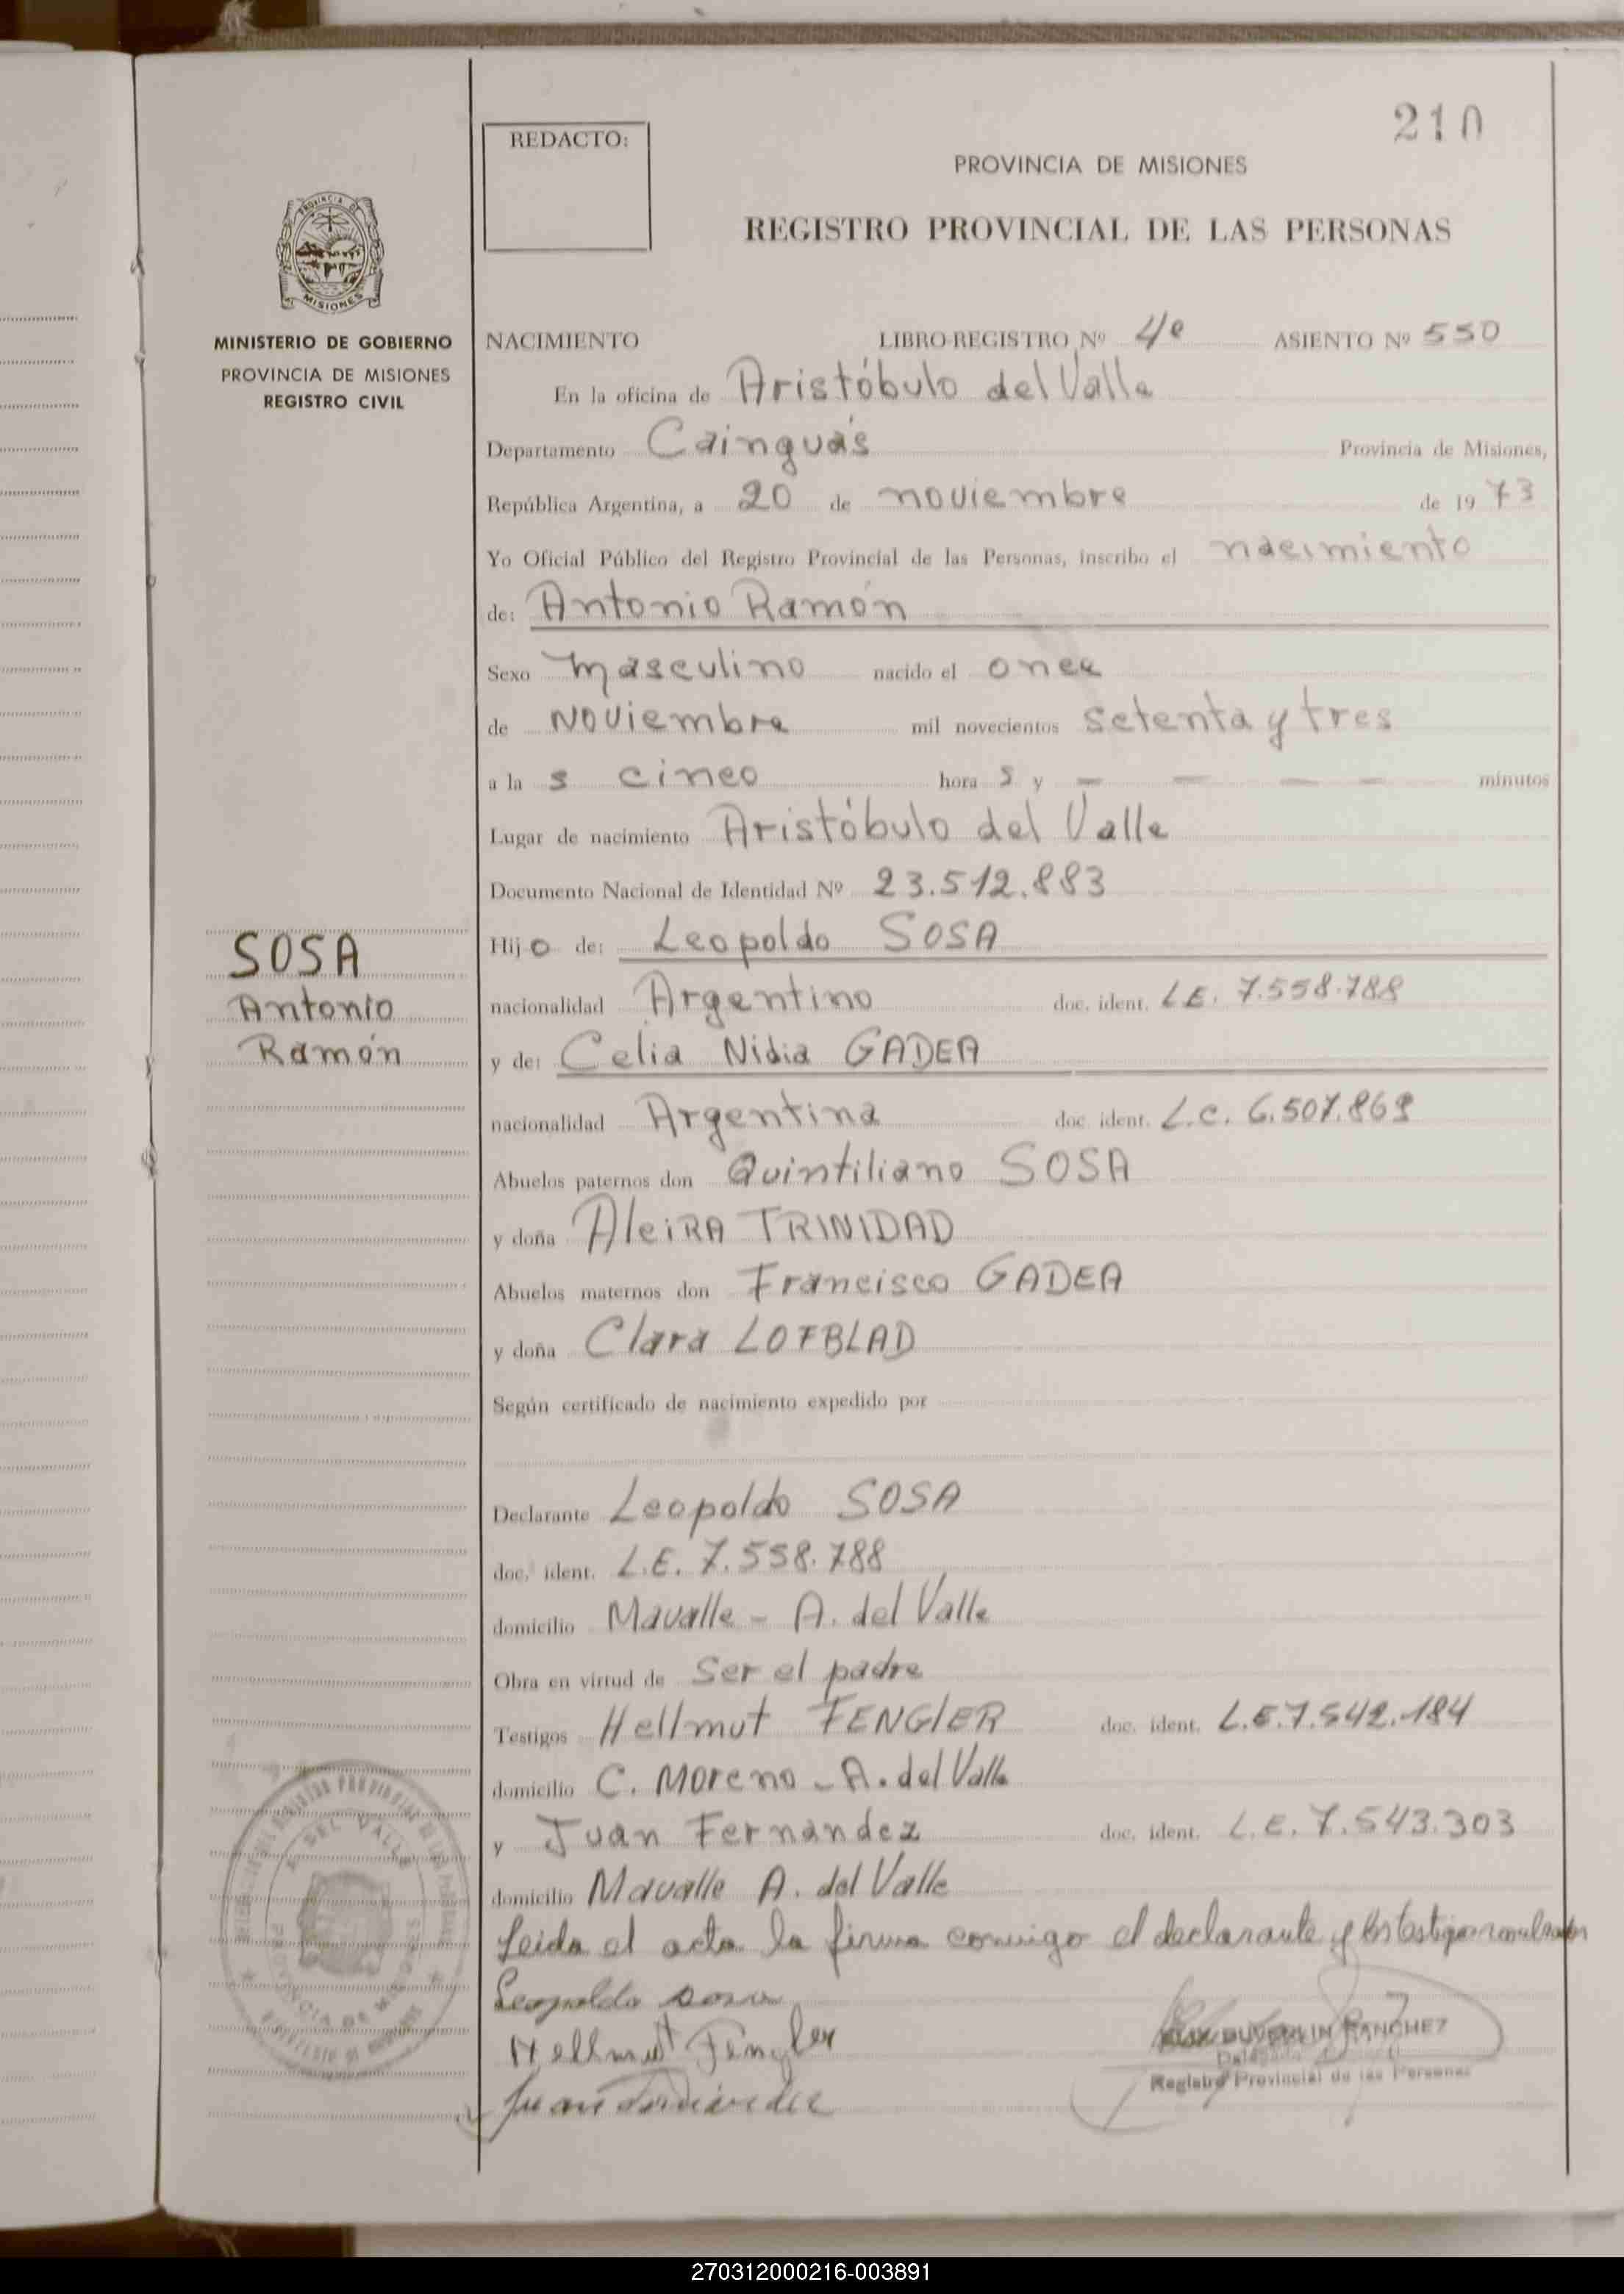 210
REDACTO:
PROVINCIA DE MISIONES
REGISTRO PROVINCIAL DE LAS PERSONAS
PROVINCIA DE MISIONES
MINISTERIO DE GOBIERNO
PROVINCIA DE MISIONES
REGISTRO CIVIL
NACIMIENTO LIBRO-REGISTRO Nº 4º ASIENTO Nº 550
En la oficina de Aristóbulo del Valle
Departamento Cainguás Provincia de Misiones,
República Argentina, a 20 de noviembre de 1973
Yo Oficial Público del Registro Provincial de las Personas, inscribo el nacimiento
de: Antonio Ramón
Sexo masculino nacido el once
de noviembre mil novecientos setenta y tres
a la s cinco hora s y — — — — minutos
Lugar de nacimiento Aristóbulo del Valle
Documento Nacional de Identidad Nº 23.512.883
SOSA
Antonio
Ramón
Hijo de: Leopoldo SOSA
nacionalidad Argentino doc. ident. L.E. 7.558.788
y de: Celia Nidia GADEA
nacionalidad Argentina doc. ident. L.C. 6.507.869
Abuelos paternos don Quintiliano SOSA
y doña AlciRA TRINIDAD
Abuelos maternos don Francisco GADEA
y doña Clara LOFBLAD
Según certificado de nacimiento expedido por
Declarante Leopoldo SOSA
doc. ident. L.E. 7.558.788
domicilio Mavalle - A. del Valle
Obra en virtud de Ser el padre
Testigos Hellmut FENGlER doc. ident. L.E. 7.542.184
domicilio C. Moreno - A. del Valle
y Juan Fernandez doc. ident. L.E. 7.543.303
domicilio Mavalle A. del Valle
Leida el acta la firma conmigo el declarante y los testigos
Leopoldo Sosa
Hellmut Fengler
Juan
A. DEL VALLE
PROVINCIA DE MISIONES
SANCHEZ
Registro Provincial de las Personas
270312000216-003891